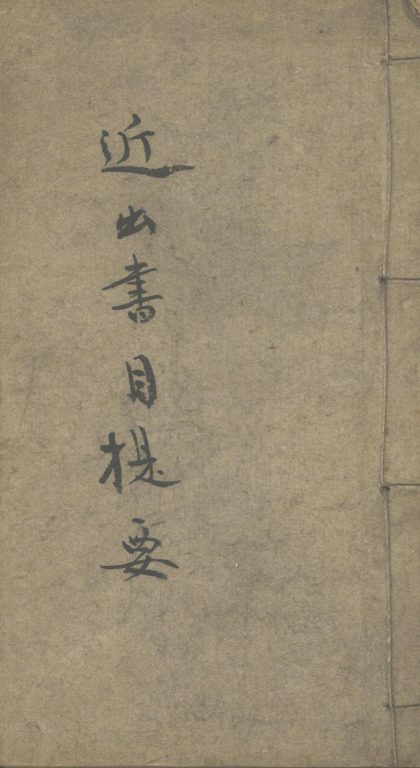 近出書目提要